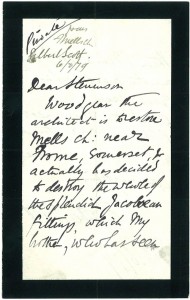 Private
Gilbert Scott.
6/7/79
Dear Stevenson
Woodyear the
architect is to restore
Mells ch: near
Frome, Somerset, &
actually has decided
to destroy the whole of
the splendid Jacobean
fittings, which My
brother, who has been